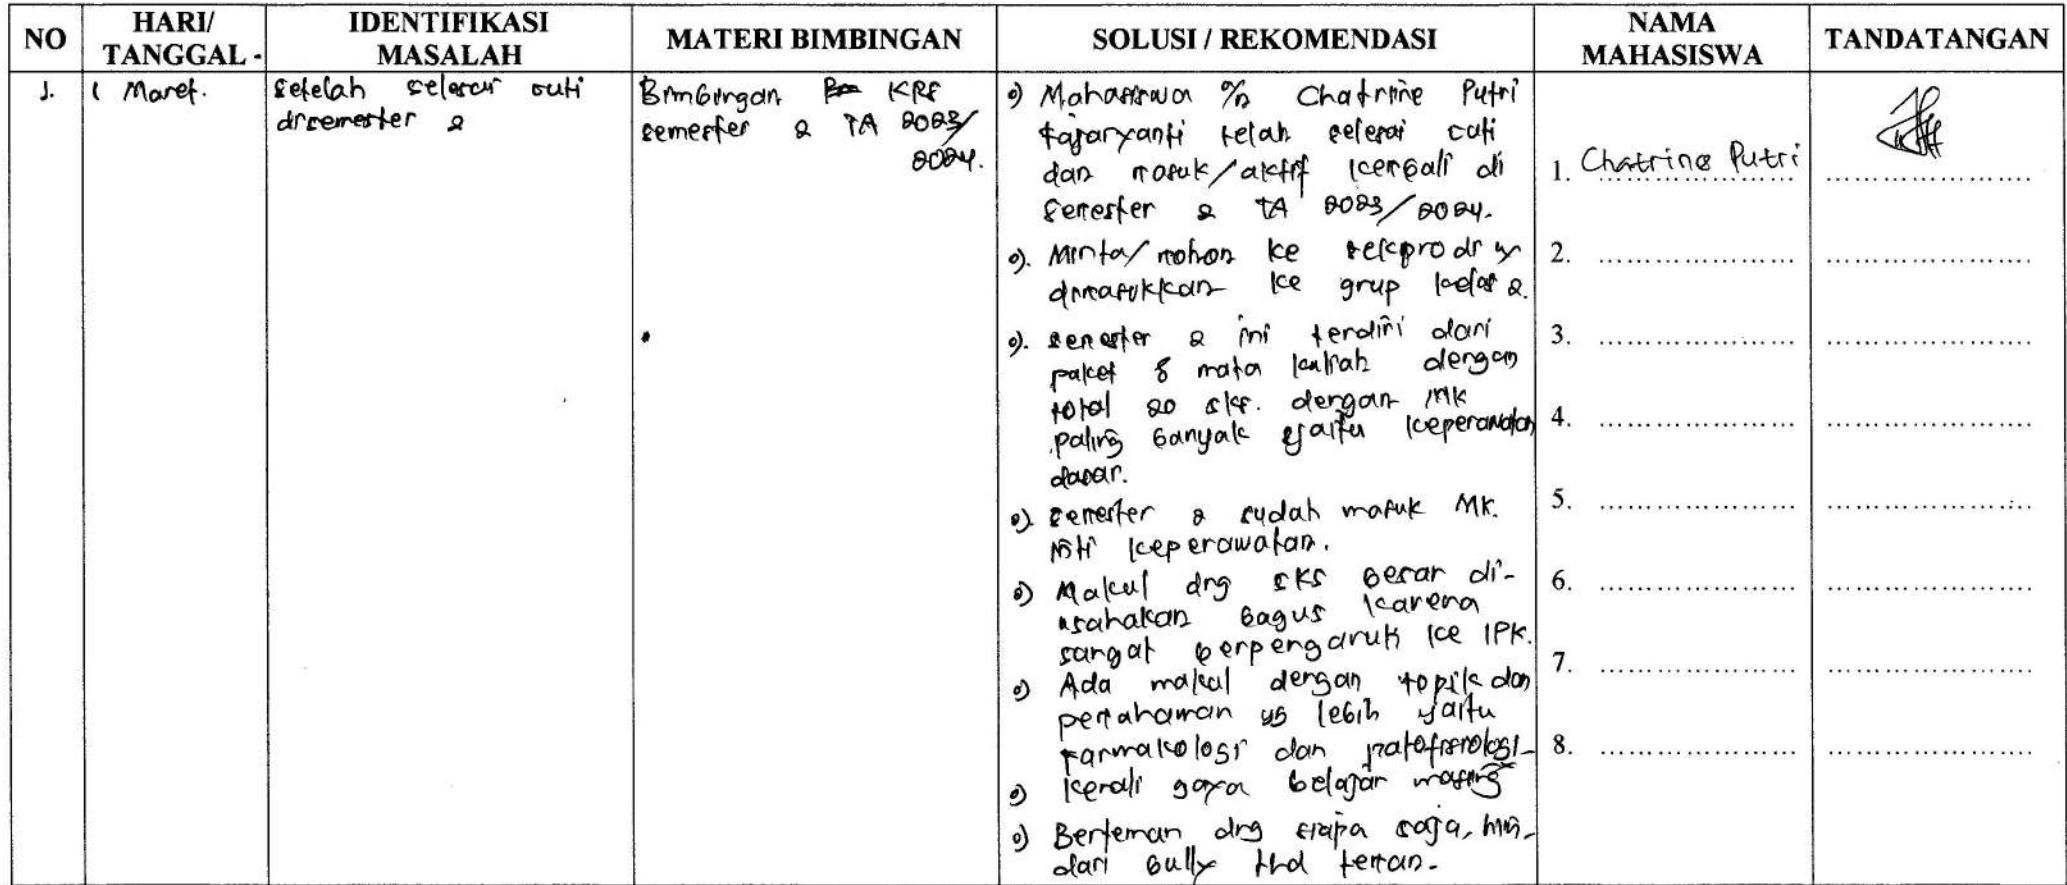 NO
HARI/
TANGGAL -
IDENTIFIKASI
MASALAH
MATERI BIMBINGAN
SOLUSI / REKOMENDASI
NAMA
MAHASISWA
TANDATANGAN
1.
1 Maret.
Setelah selesai cuti
disemester 2
Bimbingan KRS
semester 2 TA 2023/
2024.
o) Mahasiswa a/n Chatrine Putri
Fajaryanti telah selesai cuti
dan masuk/aktif kembali di
Semester 2 TA 2023/2024.
o). Minta/mohon ke sekprodi u/
dimasukkan ke grup kelas 2.
o). semester 2 ini terdiri dari
paket 8 mata kuliah dengan
total 20 sks. dengan MK
paling banyak yaitu keperawatan
dasar.
o). semester 2 sudah masuk MK.
inti keperawatan.
o) Makul dng SKS besar di-
usahakan bagus karena
sangat berpengaruh ke IPK.
o) Ada makul dengan topik dan
pemahaman yg lebih yaitu
farmakologi dan patofisiologi
o) kenali gaya belajar masing²
o) Berteman dng siapa saja, hin-
dari bully thd teman.
1. Chatrine Putri
2.
3.
4.
5.
6.
7.
8.